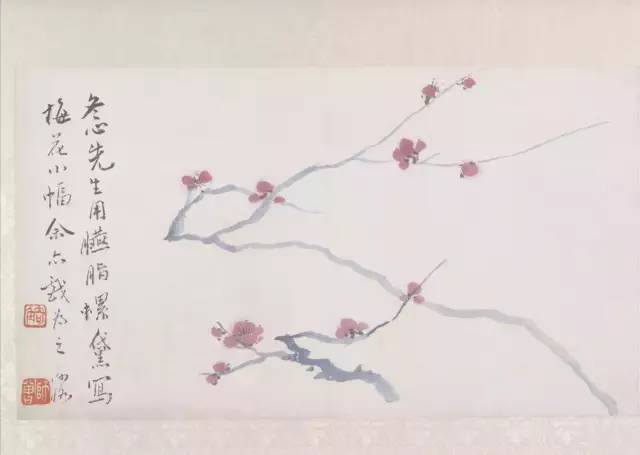 冬心先生用臙脂螺黛寫
梅花小幅余亦戲為之
師曾